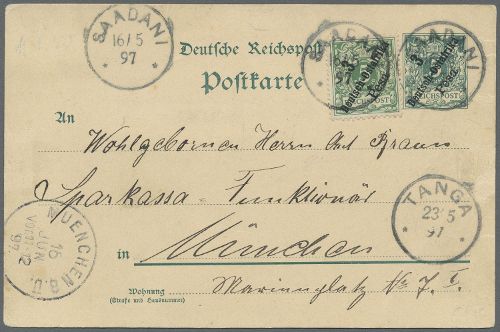 SAADANI
16/5
97
Deutsche Reichspost
Postkarte
SAADANI
5
97
3
Deutsch-Ostafrika
Pesa
REICHSPOST
SAADANI
3
Deutsch-Ostafrika
Pesa
REICHSPOST
An
Wohlgeborenen Herrn Ant Braun
Sparkassa-Funktionär
TANGA
23/5
97
MUENCHEN B.U.
16
JUN
97
in München
Wohnung
(Straße und Hausnummer)
Marienplatz No 7